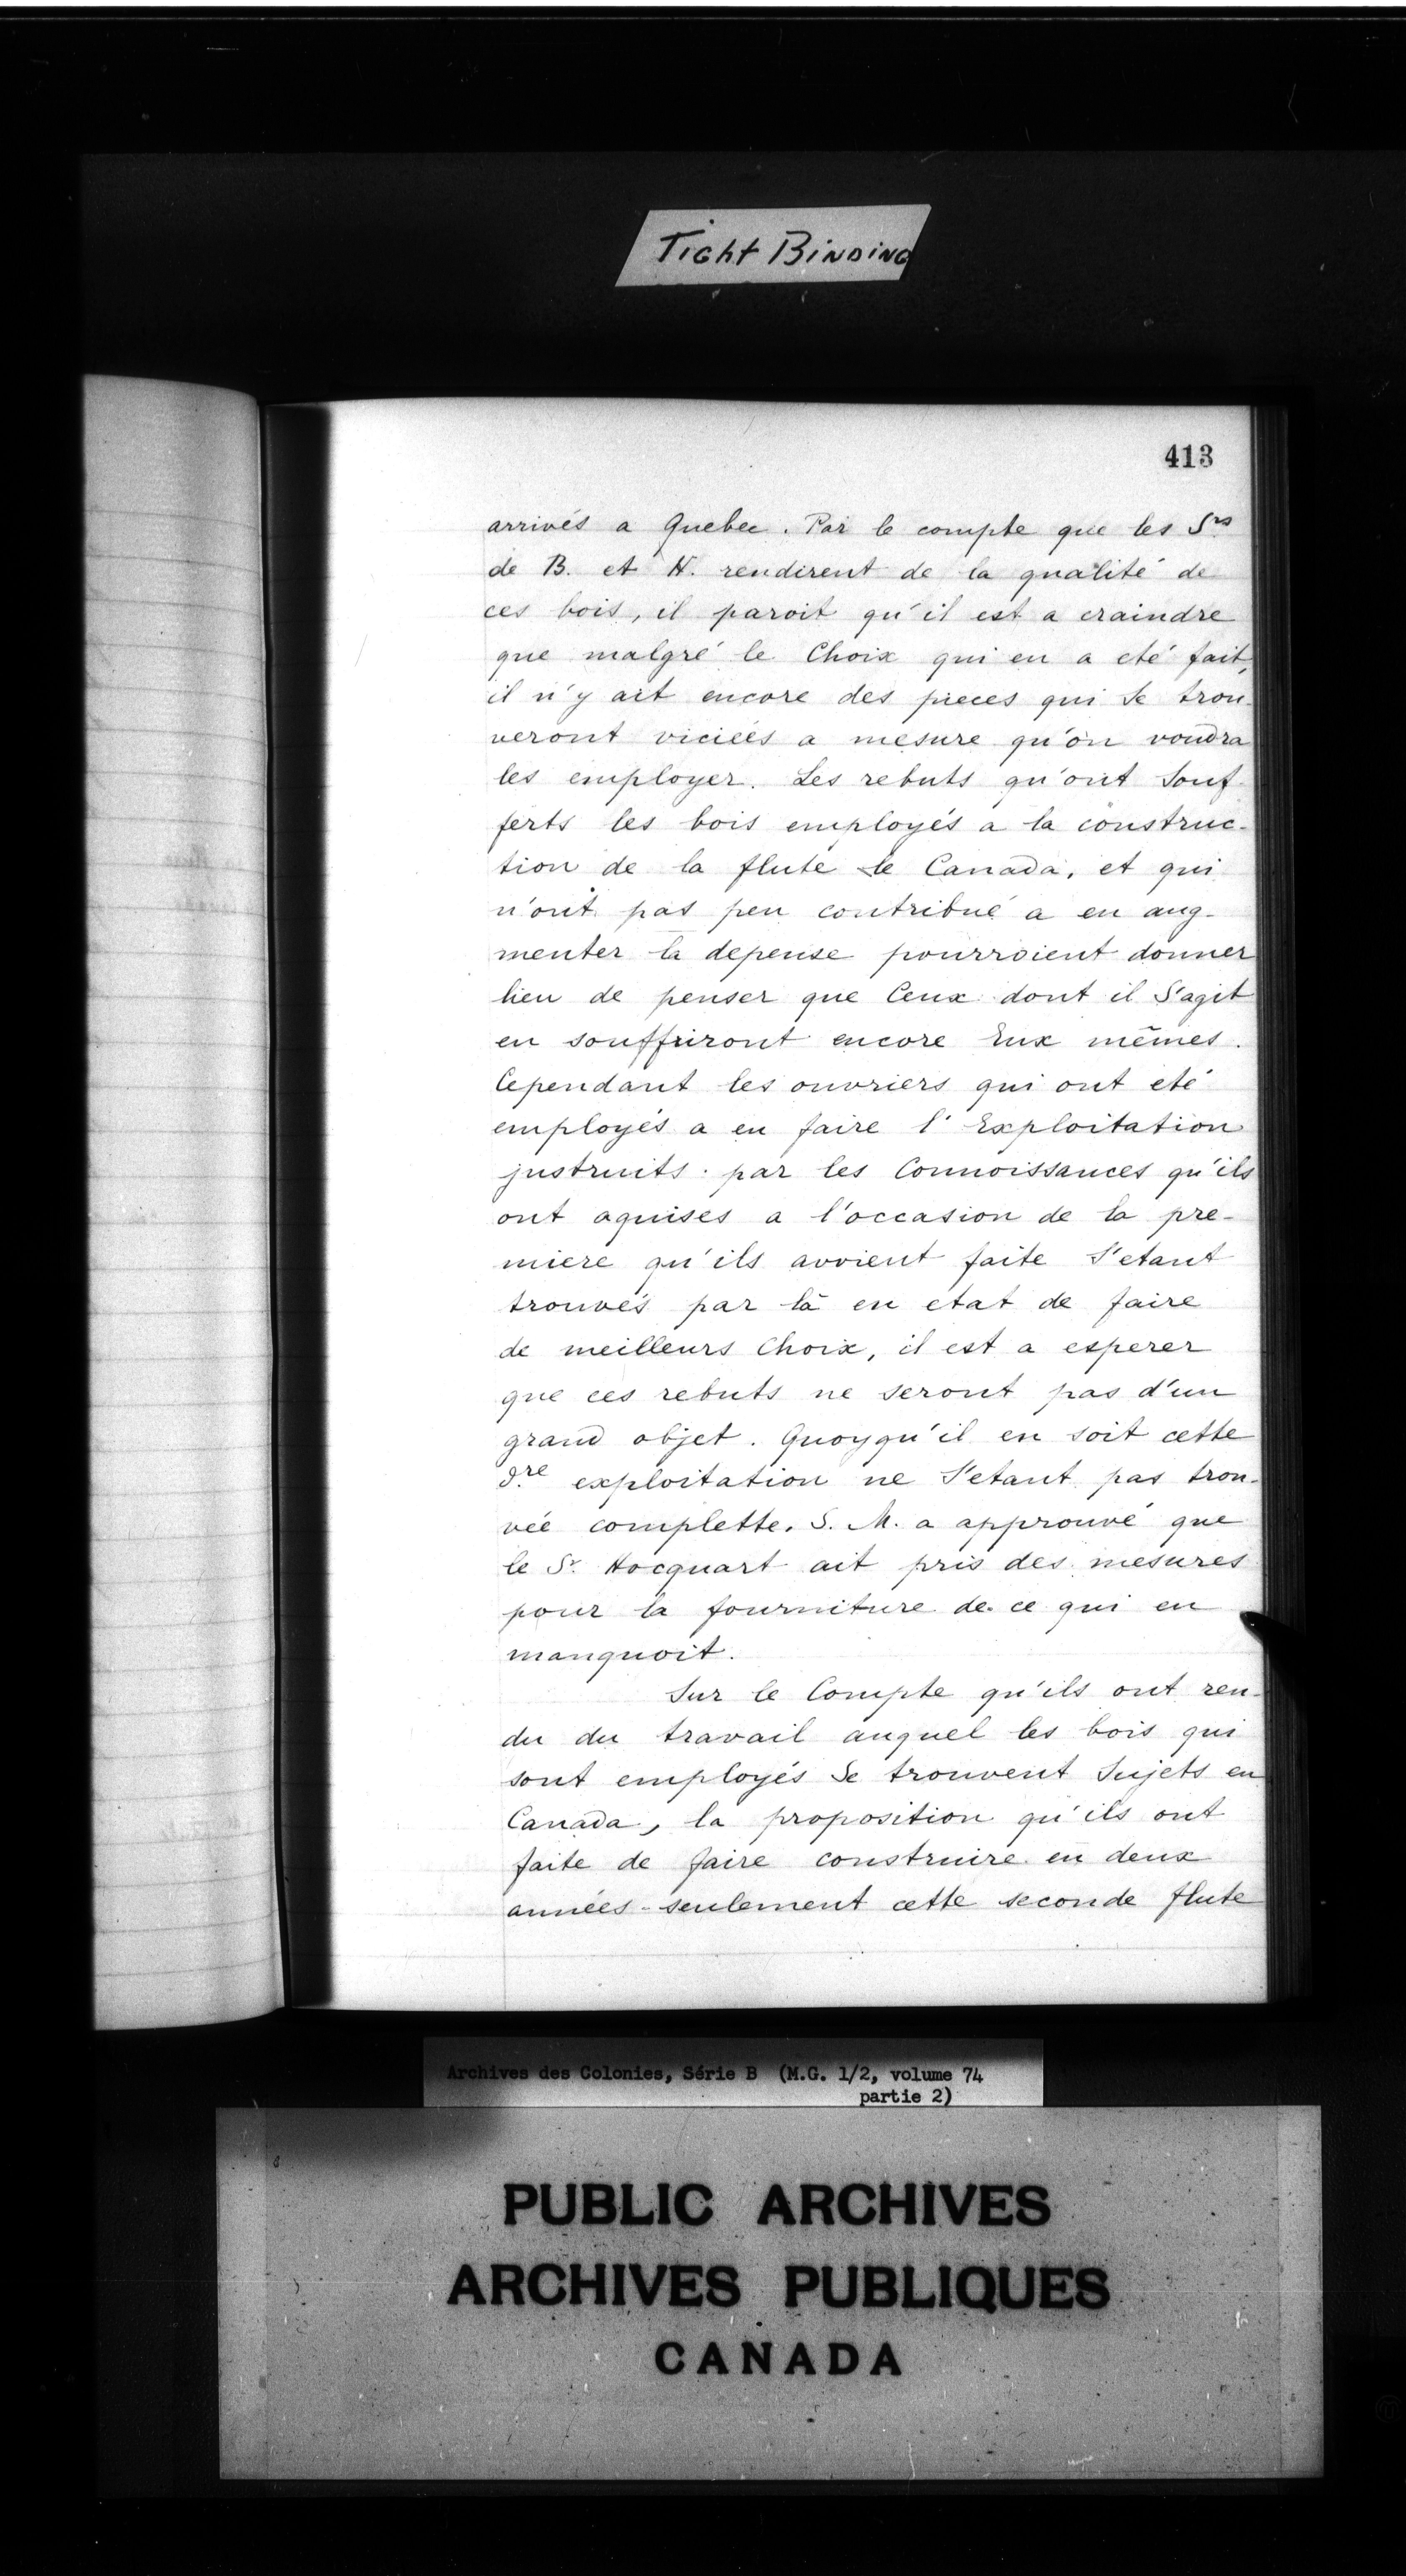 Tight Binding
413
arrivés a Quebec. Par le compte que les Srs
de B. et H. rendirent de la qualité de
ces bois, il paroit qu'il est a craindre
que malgré le Choix qui en a eté fait,
il n'y ait encore des pieces qui Se trou-
veront viciées a mesure qu'on voudra
les employer. Les rebuts qu'ont Souf-
ferts les bois employés a la construc-
tion de la flute le Canada, et qui
n'ont pas peu contribué a en aug-
menter la depense pourroient donner
lieu de penser que Ceux dont il S'agit
en souffriront encore Eux mêmes.
Cependant les ouvriers qui ont eté
employés a en faire l'Exploitation
justruits par les Connoissances qu'ils
ont aquises a l'occasion de la pre-
miere qu'ils avoient faite S'etant
trouvés par là en etat de faire
de meilleurs Choix, il est a esperer
que ces rebuts ne seront pas d'un
grand objet. Quoyqu'il en soit cette
dre exploitation ne S'etant pas trou-
vée complette. S. M. a approuvé que
le Sr Hocquart ait pris des mesures
pour la fourniture de ce qui en
manquoit.
Sur le Compte qu'ils ont ren-
du du travail auquel les bois qui
sont employés Se trouvent Sujets en
Canada, la proposition qu'ils ont
faite de faire construire en deux
années seulement cette seconde flute
Archives des Colonies, Série B (M.G. 1/2, volume 74
partie 2)
PUBLIC ARCHIVES
ARCHIVES PUBLIQUES
CANADA